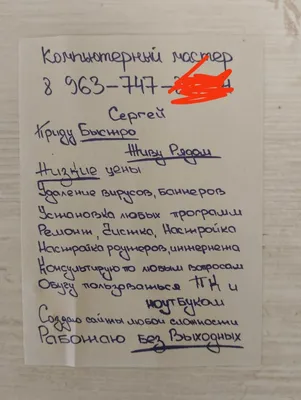 Компьютерный мастер
8 963-747-
Сергей
Приду Быстро
Живу Рядом
Низкие цены
Удаление вирусов, Баннеров
Установка любых программ
Ремонт Чистка, Настройка
Настройка роутеров, интернета
Консультирую по любым вопросам
Обучу пользоваться ПК и
ноутБуком
Создаю сайты любой сложности
Работаю Без Выходных